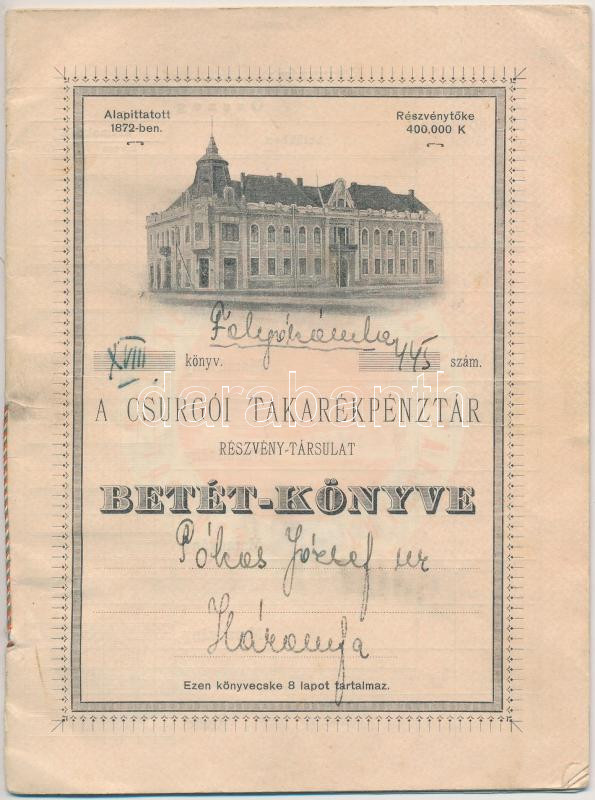 Alapittatott
1872-ben.
Részvénytőke
400.000 K
Folyószámla
XVIII könyv. 445 szám.
darabanth
A CSURGÓI TAKARÉKPÉNZTÁR
RÉSZVÉNY-TÁRSULAT
BETÉT-KÖNYVE
Pókos József ur
Háromfa
Ezen könyvecske 8 lapot tartalmaz.